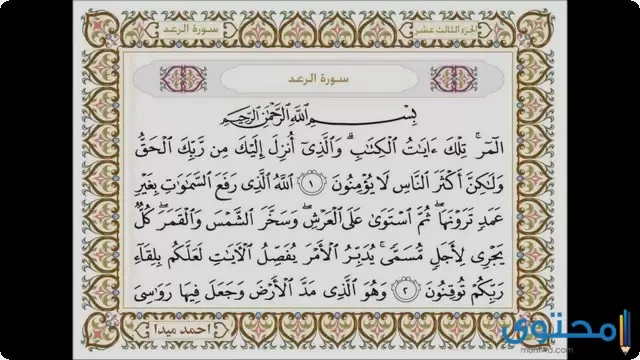 سورة الرعد
الجزء الثالث عشر
سورة الرعد
بِسْمِ اللَّهِ الرَّحْمَٰنِ الرَّحِيمِ
الٓمٓر ۚ تِلْكَ ءَايَٰتُ الْكِتَٰبِ ۗ وَالَّذِىٓ أُنزِلَ إِلَيْكَ مِن رَّبِّكَ الْحَقُّ
وَلَٰكِنَّ أَكْثَرَ النَّاسِ لَا يُؤْمِنُونَ ١ اللَّهُ الَّذِى رَفَعَ السَّمَٰوَٰتِ بِغَيْرِ
عَمَدٍ تَرَوْنَهَا ۖ ثُمَّ اسْتَوَىٰ عَلَى الْعَرْشِ ۖ وَسَخَّرَ الشَّمْسَ وَالْقَمَرَ ۖ كُلٌّ
يَجْرِى لِأَجَلٍ مُّسَمًّى ۚ يُدَبِّرُ الْأَمْرَ يُفَصِّلُ الْءَايَٰتِ لَعَلَّكُم بِلِقَآءِ
رَبِّكُمْ تُوقِنُونَ ٢ وَهُوَ الَّذِى مَدَّ الْأَرْضَ وَجَعَلَ فِيهَا رَوَٰسِىَ
احمد ميدا
محتوى